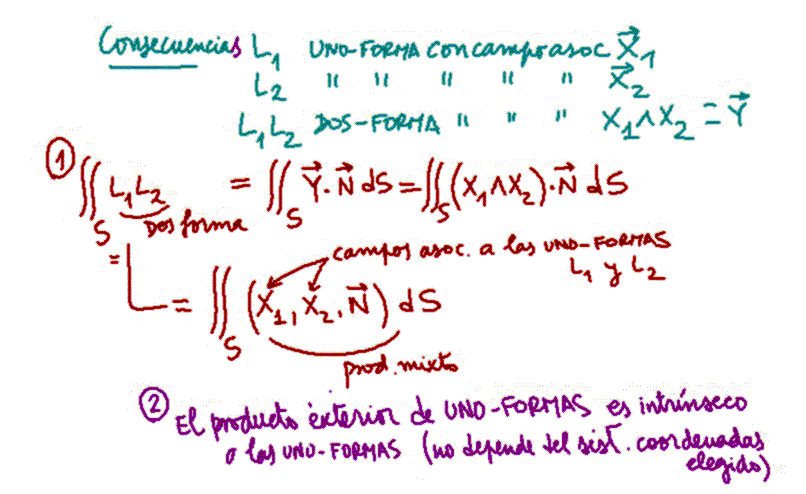 Consecuencias L₁ UNO-FORMA con campo asoc X⃗₁
L₂ " " " " " X⃗₂
L₁L₂ DOS-FORMA " " " X₁∧X₂ = Y⃗
① ∬_S L₁L₂ = ∬_S Y⃗·N⃗ dS = ∬_S (X₁∧X₂)·N⃗ dS
Dos forma
campos asoc. a las UNO-FORMAS
L₁ y L₂
= = ∬_S (X₁, X₂, N⃗) dS
prod. mixto
② El producto exterior de UNO-FORMAS es intrínseco
a las UNO-FORMAS (no depende del sist. coordenadas
elegido)